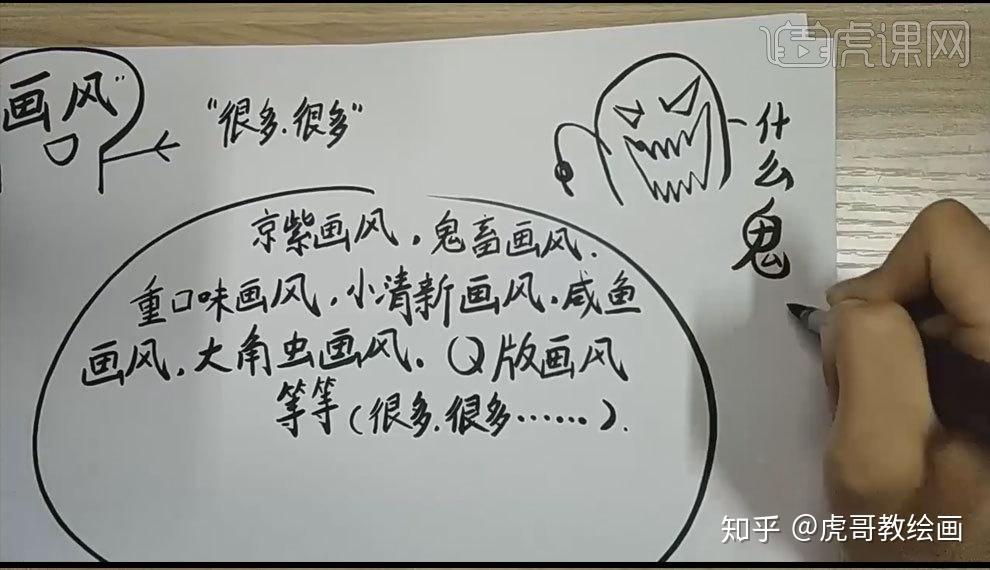 虎课网
画风”
“很多.很多”
什么鬼
京紫画风，鬼畜画风.
重口味画风，小清新画风，咸鱼
画风，大角虫画风. Q版画风
等等(很多.很多……).
知乎 @虎哥教绘画